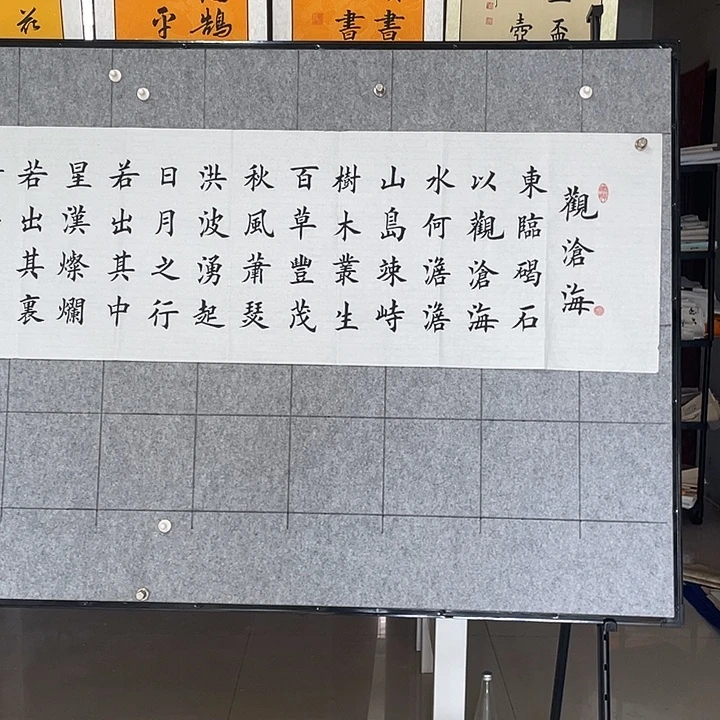 觀滄海
東臨碣石
以觀滄海
水何澹澹
山島竦峙
樹木叢生
百草豐茂
秋風蕭瑟
洪波湧起
日月之行
若出其中
星漢燦爛
若出其裏
壺
書
書
鵠
平
花